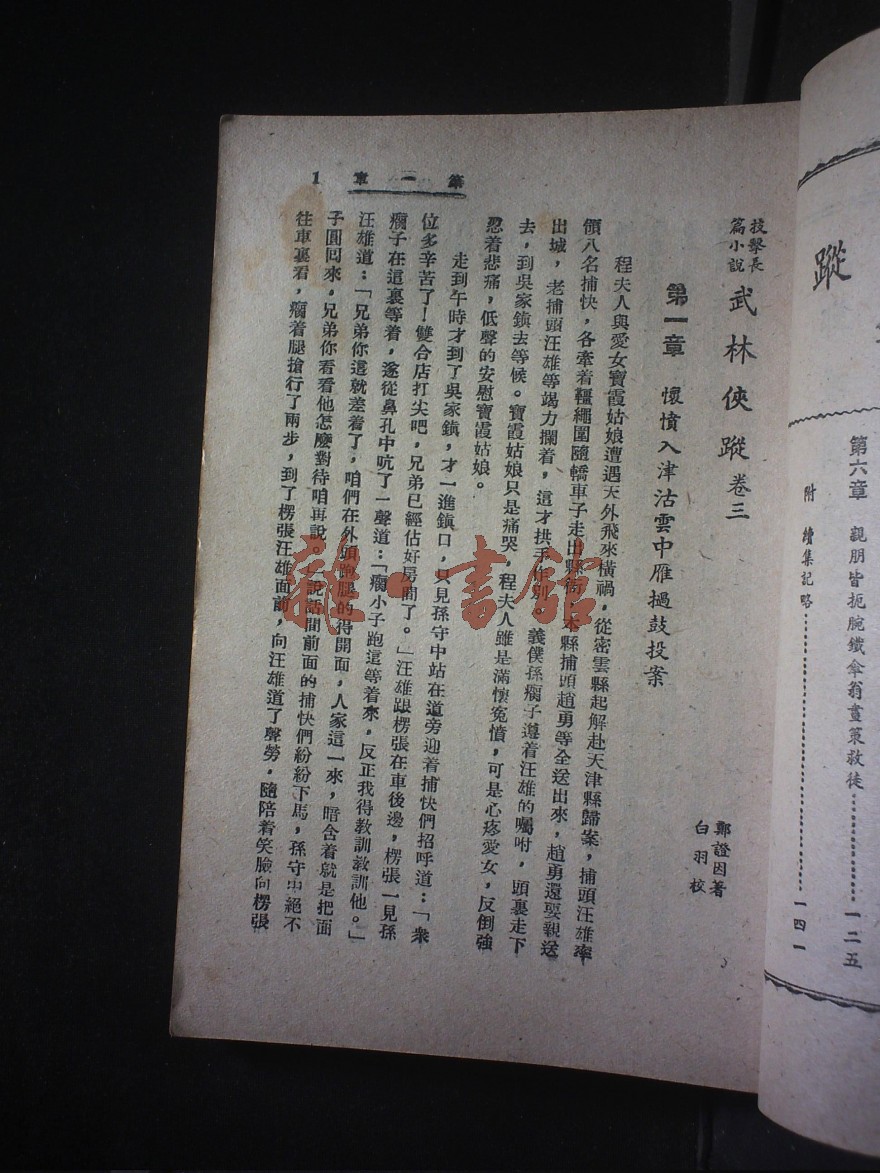 蹤
第六章 親朋皆扼腕鐵傘翁畫策救徒……………一二五
附 續集記略……………一四一
技擊長
篇小說
武林俠蹤 卷三
鄭證因著
白羽校
第一章 懷憤入津沽雲中雁撾鼓投案
程夫人與愛女寶霞姑娘遭遇天外飛來橫禍，從密雲縣起解赴天津縣歸案，捕頭汪雄率
領八名捕快，各牽着韁繩圍隨轎車子走出縣衙，本縣捕頭趙勇等全送出來，趙勇還要親送
出城，老捕頭汪雄等竭力攔着，這才拱手作別。義僕孫瘸子遵着汪雄的囑咐，頭裏走下
去，到吳家鎮去等候。寶霞姑娘只是痛哭，程夫人雖是滿懷冤憤，可是心疼愛女，反倒強
忍着悲痛，低聲的安慰寶霞姑娘。
走到午時才到了吳家鎮，才一進鎮口，只見孫守中站在道旁迎着捕快們招呼道：「衆
位多辛苦了！雙合店打尖吧，兄弟已經佔好房間了。」汪雄跟楞張在車後邊，楞張一見孫
瘸子在這裏等着，遂從鼻孔中吭了一聲道：「瘸小子跑這等着來，反正我得教訓教訓他。」
汪雄道：「兄弟你這就差着了，咱們在外頭跑腿的得開面，人家這一來，暗含着就是把面
子圓回來，兄弟你看看他怎麼對待咱再說。」說話間前面的捕快們紛紛下馬，孫守中絕不
往車裏看，瘸着腿搶行了兩步，到了楞張汪雄面前，向汪雄道了聲勞，隨陪着笑臉向楞張
第一章 1
雜·書館